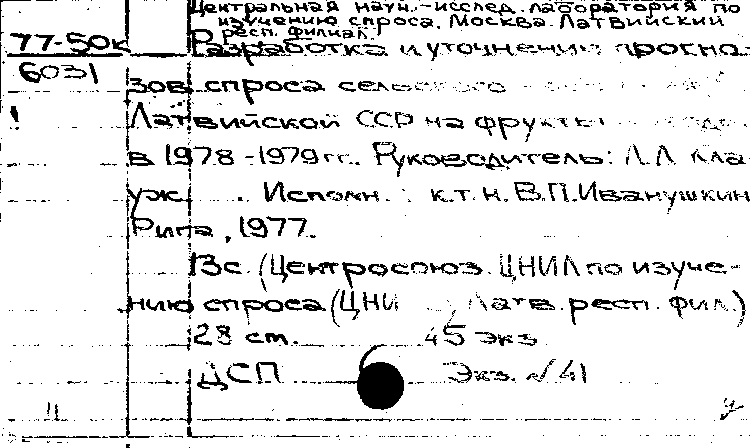 Центральная науч.-исслед. лаборатория по
изучению спроса. Москва. Латвийский
респ. филиал.
77-50к Разработка и уточнению прогно-
6031
зов спроса сельского
Латвийской ССР на фрукты
в 1978-1979 гг. Руководитель: Л.Л. Кла-
уж . Исполн.: к.т.н. В.П. Иванушкин
Рига, 1977.
13с. (Центросоюз. ЦНИЛ по изуче-
нию спроса (ЦНИ Латв. респ. фил.)
28 cm. 45 экз.
ДСП Экз. №41
11